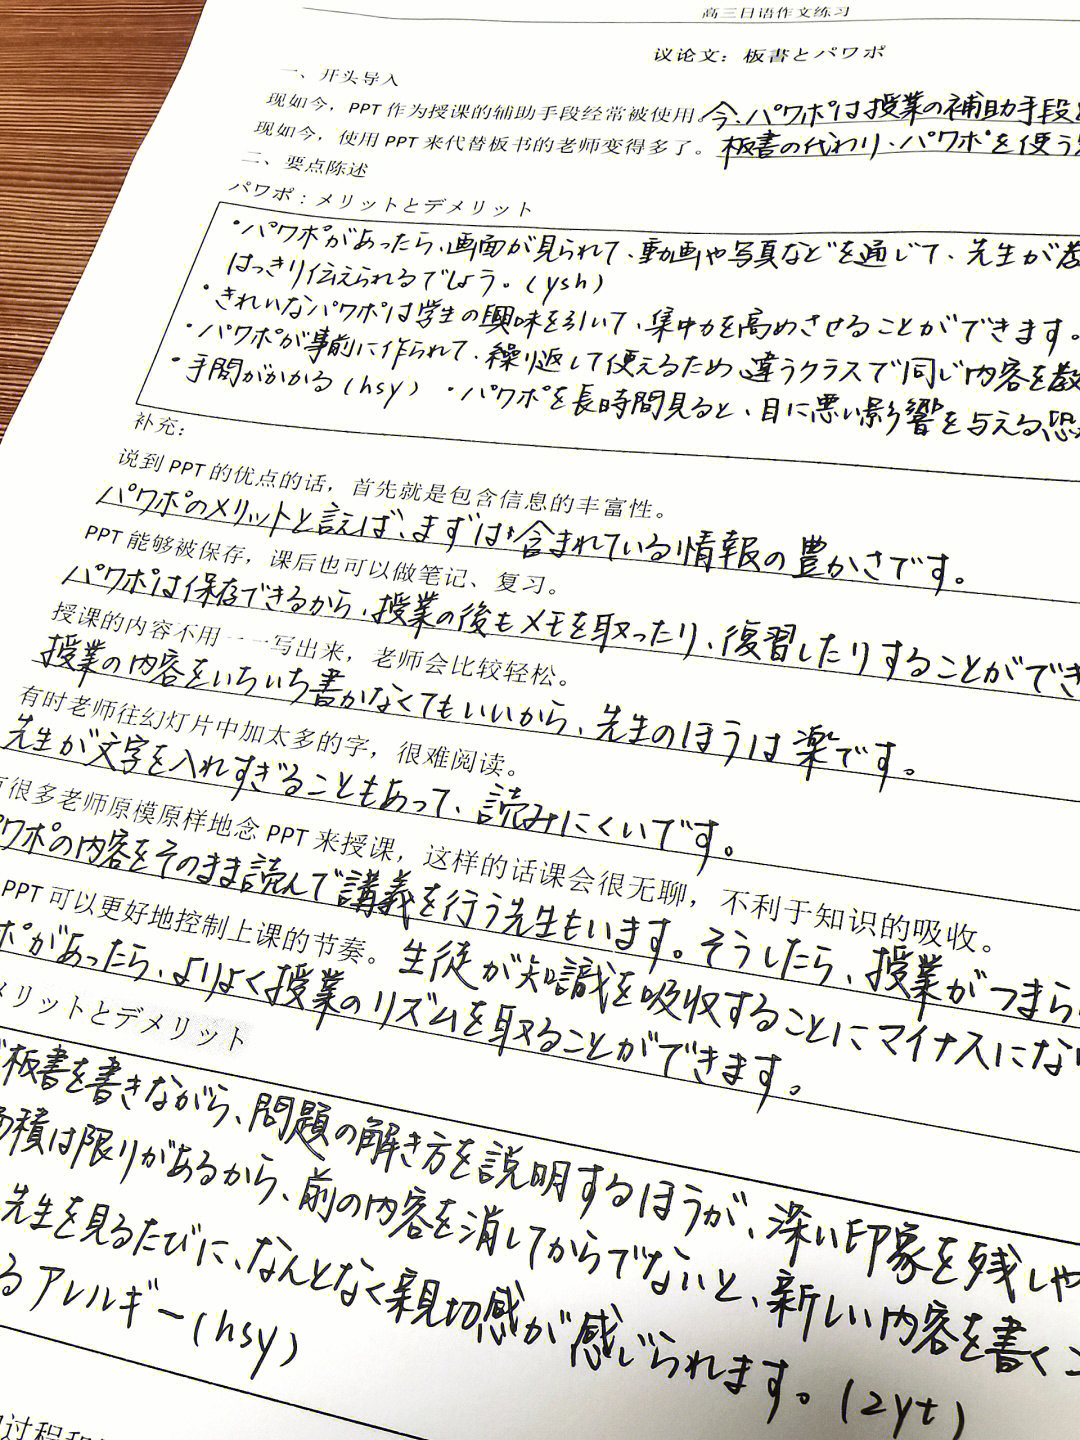 高三日语作文练习
议论文：板書とパワポ
一、开头导入
现如今，PPT 作为授课的辅助手段经常被使用。今、パワポは授業の補助手段
现如今，使用 PPT 来代替板书的老师变得多了。板書の代わり、パワポを使う
二、要点陈述
パワポ：メリットとデメリット
・パワポがあったら、画面が見られて、動画や写真などを通じて、先生が
はっきり伝えられるでしょう。(ysh)
・きれいなパワポは学生の興味を引いて、集中力を高めさせることができます。
・パワポが事前に作られて、繰り返して使えるため、違うクラスで同じ内容を教
・手間がかかる(hsy) ・パワポを長時間見ると、目に悪い影響を与える恐
补充：
说到 PPT 的优点的话，首先就是包含信息的丰富性。
パワポのメリットと言えば、まずは含まれている情報の豊かさです。
PPT 能够被保存，课后也可以做笔记、复习。
パワポは保存できるから、授業の後もメモを取ったり、復習したりすることができ
授课的内容不用一一写出来，老师会比较轻松。
授業の内容をいちいち書かなくてもいいから、先生のほうは楽です。
有时老师往幻灯片中加太多的字，很难阅读。
先生が文字を入れすぎることもあって、読みにくいです。
很多老师原模原样地念 PPT 来授课，这样的话课会很无聊，不利于知识的吸收。
ワポの内容をそのまま読んで講義を行う先生もいます。そうしたら、授業がつまら
PPT 可以更好地控制上课的节奏。生徒が知識を吸収することにマイナスにな
ポがあったら、よりよく授業のリズムを取ることができます。
メリットとデメリット
板書を書きながら、問題の解き方を説明するほうが、深い印象を残しや
面積は限りがあるから、前の内容を消してからでないと、新しい内容を書くこ
先生を見るたびに、なんとなく親切感が感じられます。(zyt)
るアレルギー(hsy)